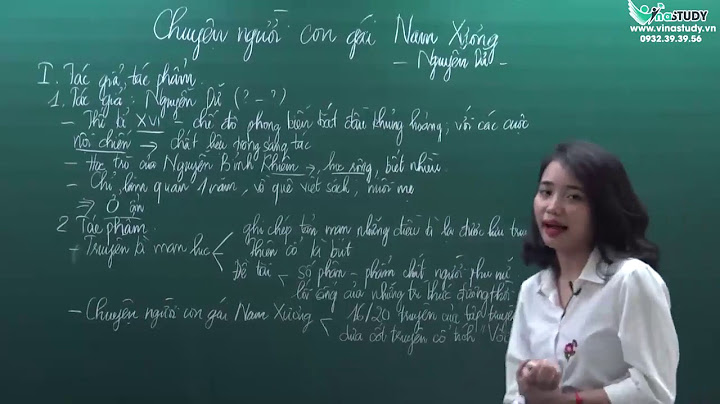 Chuyện người con gái Nam Xương
– Nguyễn Dữ –
I. Tác giả, tác phẩm
1. Tác giả: Nguyễn Dữ (? – ?)
– Thế kỉ XVI – chế độ phong kiến bắt đầu khủng hoảng, với các cuộc
nội chiến → chất liệu trong sáng tác
– Học trò của Nguyễn Bỉnh Khiêm →, học rộng, biết nhiều.
– Chỉ làm quan 1 năm, về quê viết sách, nuôi mẹ
⇒ Ở ẩn
2 Tác phẩm
– Truyền kì mạn lục < ghi chép tản mạn những điều kì lạ được lưu
thiên cổ kì bút
Đề tài – số phận – phẩm chất người phụ nữ
lối sống của những trí thức đương thời
– Chuyện người con gái Nam Xương < 16/20 truyện
dựa cốt truyện cổ tích "Vợ
VinaSTUDY
www.vinastudy.vn
0932.39.39.56